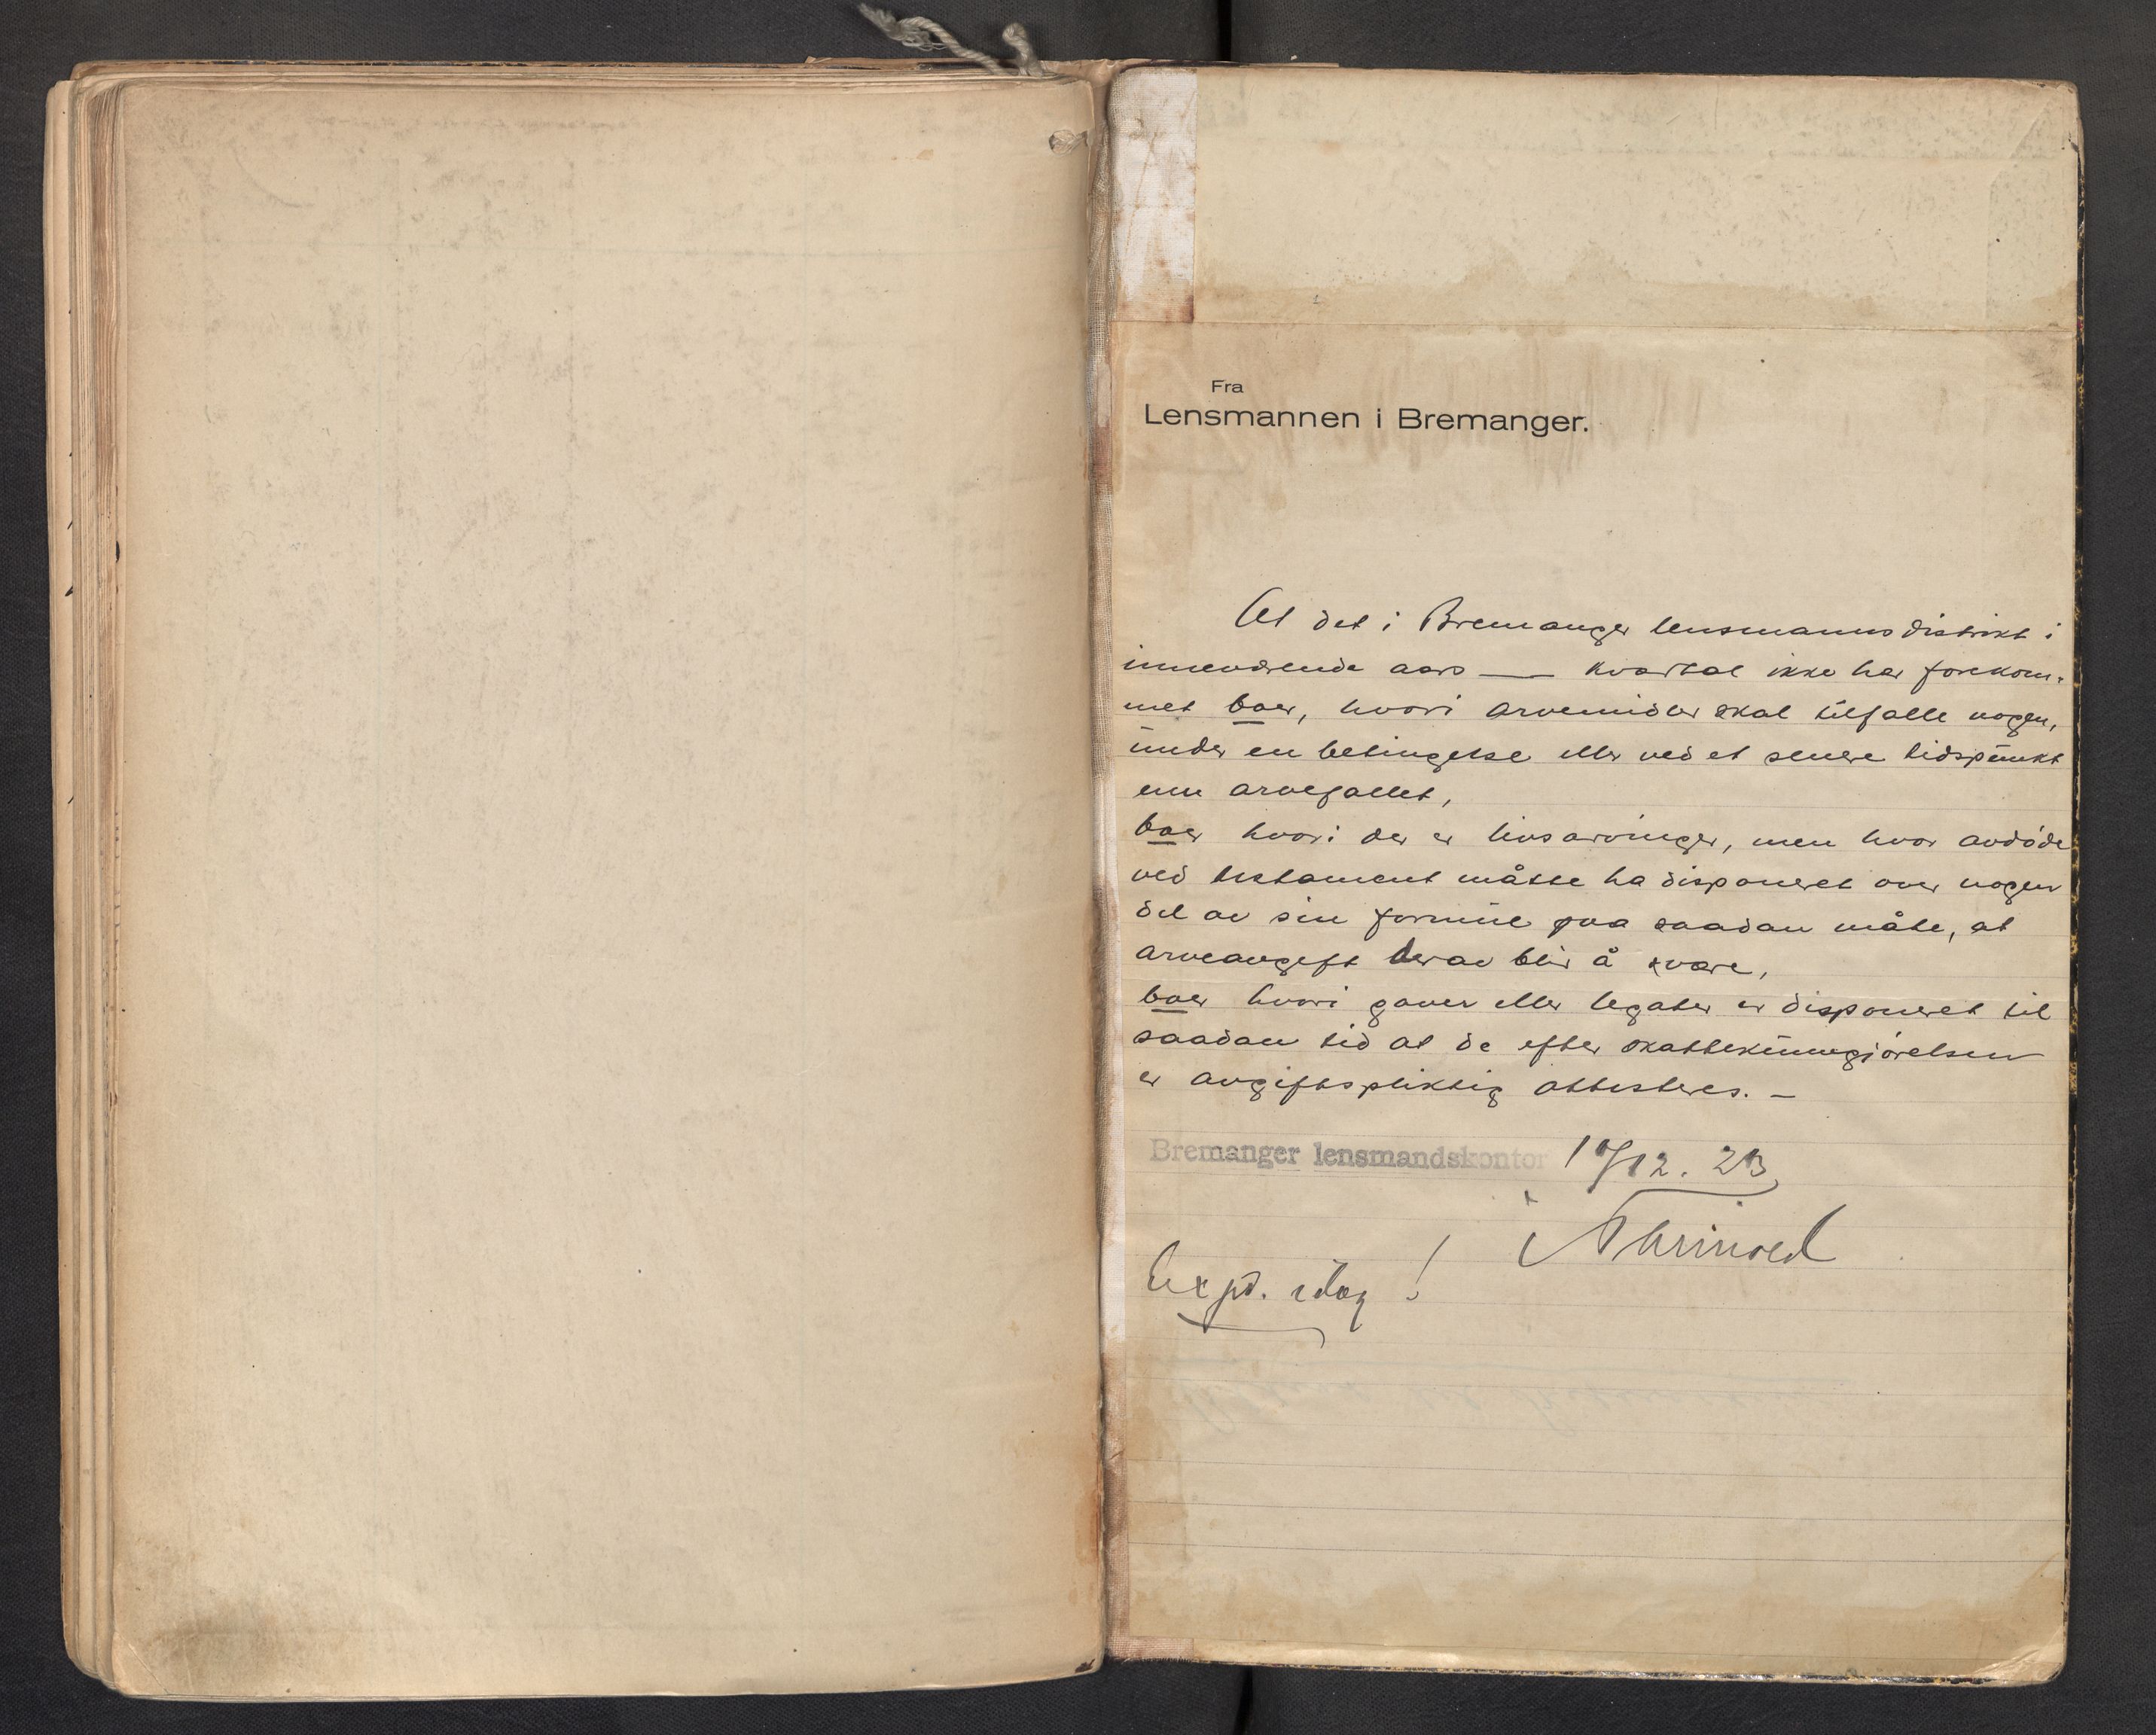 Fra
Lensmannen i Bremanger.
At det i Bremanger lensmannsdistrikt i
inneværende aars — kvartal ikke har forekom-
met boer, hvori arvemidler skal tilfalle nogen,
under en betingelse eller ved et senere tidspunkt
enn arvefallet,
boer hvori der er livsarvinger, men hvor avdøde
ved testament måtte ha disponeret over nogen
del av sin formue paa saadan måte, at
arveavgift derav blir å svare,
boer hvori gaver eller legater er disponeret til
saadan tid at de efter skattekunngjørelsen
er avgiftspliktig attesteres. —
Bremanger lensmandskontor /12. 23
Expd. idag !